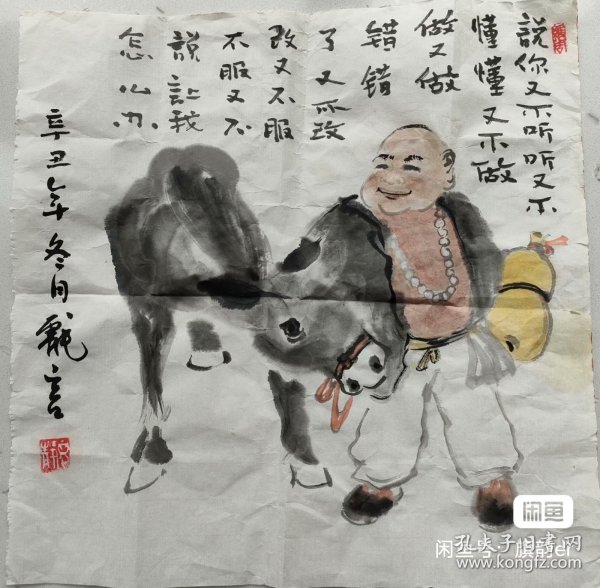 說你又不听听又不
懂懂又不做
做又做
错错
了又不改
改又不服
不服又不
說让我
怎么办
辛丑年冬月
闲鱼
孔夫子旧书网
www.kongfz.com